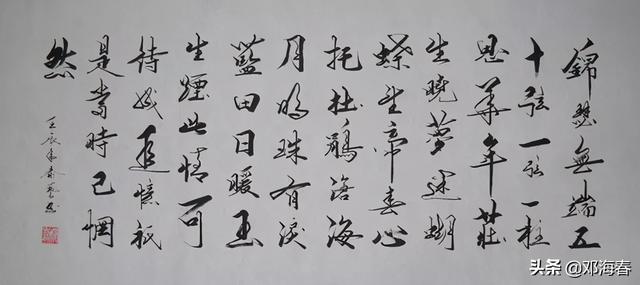 錦瑟無端五
十弦一弦一柱
思華年莊
生曉夢迷蝴
蝶望帝春心
托杜鵑滄海
月明珠有淚
藍田日暖玉
生煙此情可
待成追憶祇
是當時已惘
然
壬辰年春
头条 @邓海春